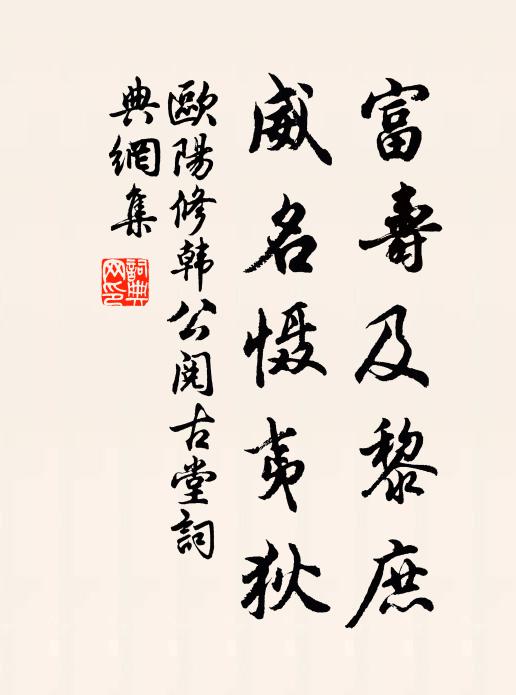 富壽及黎庶
威名慑夷狄
歐陽修韩公阅古堂詞
典網集
詞典网印